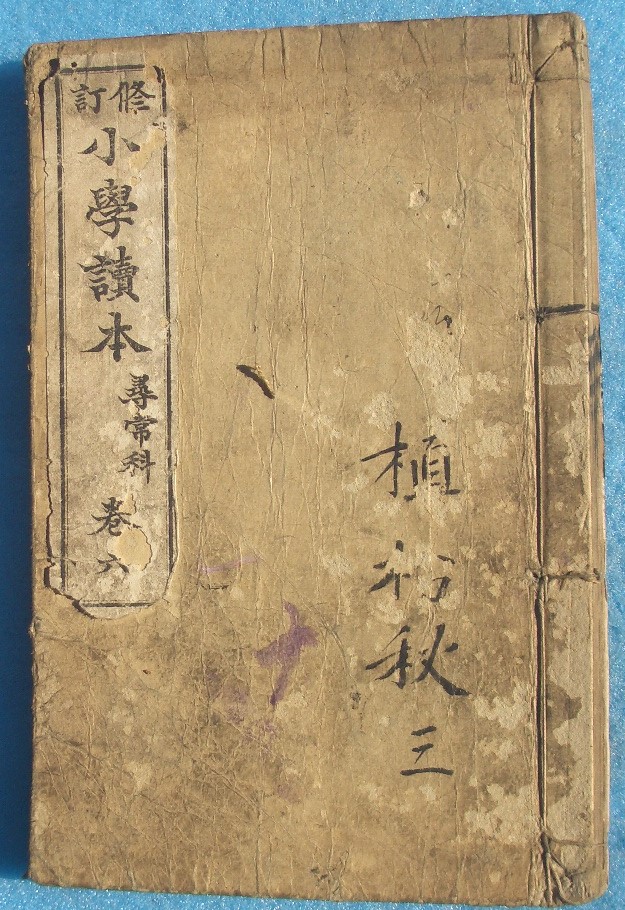 修訂
小學讀本
尋常科
卷六
植村秋三